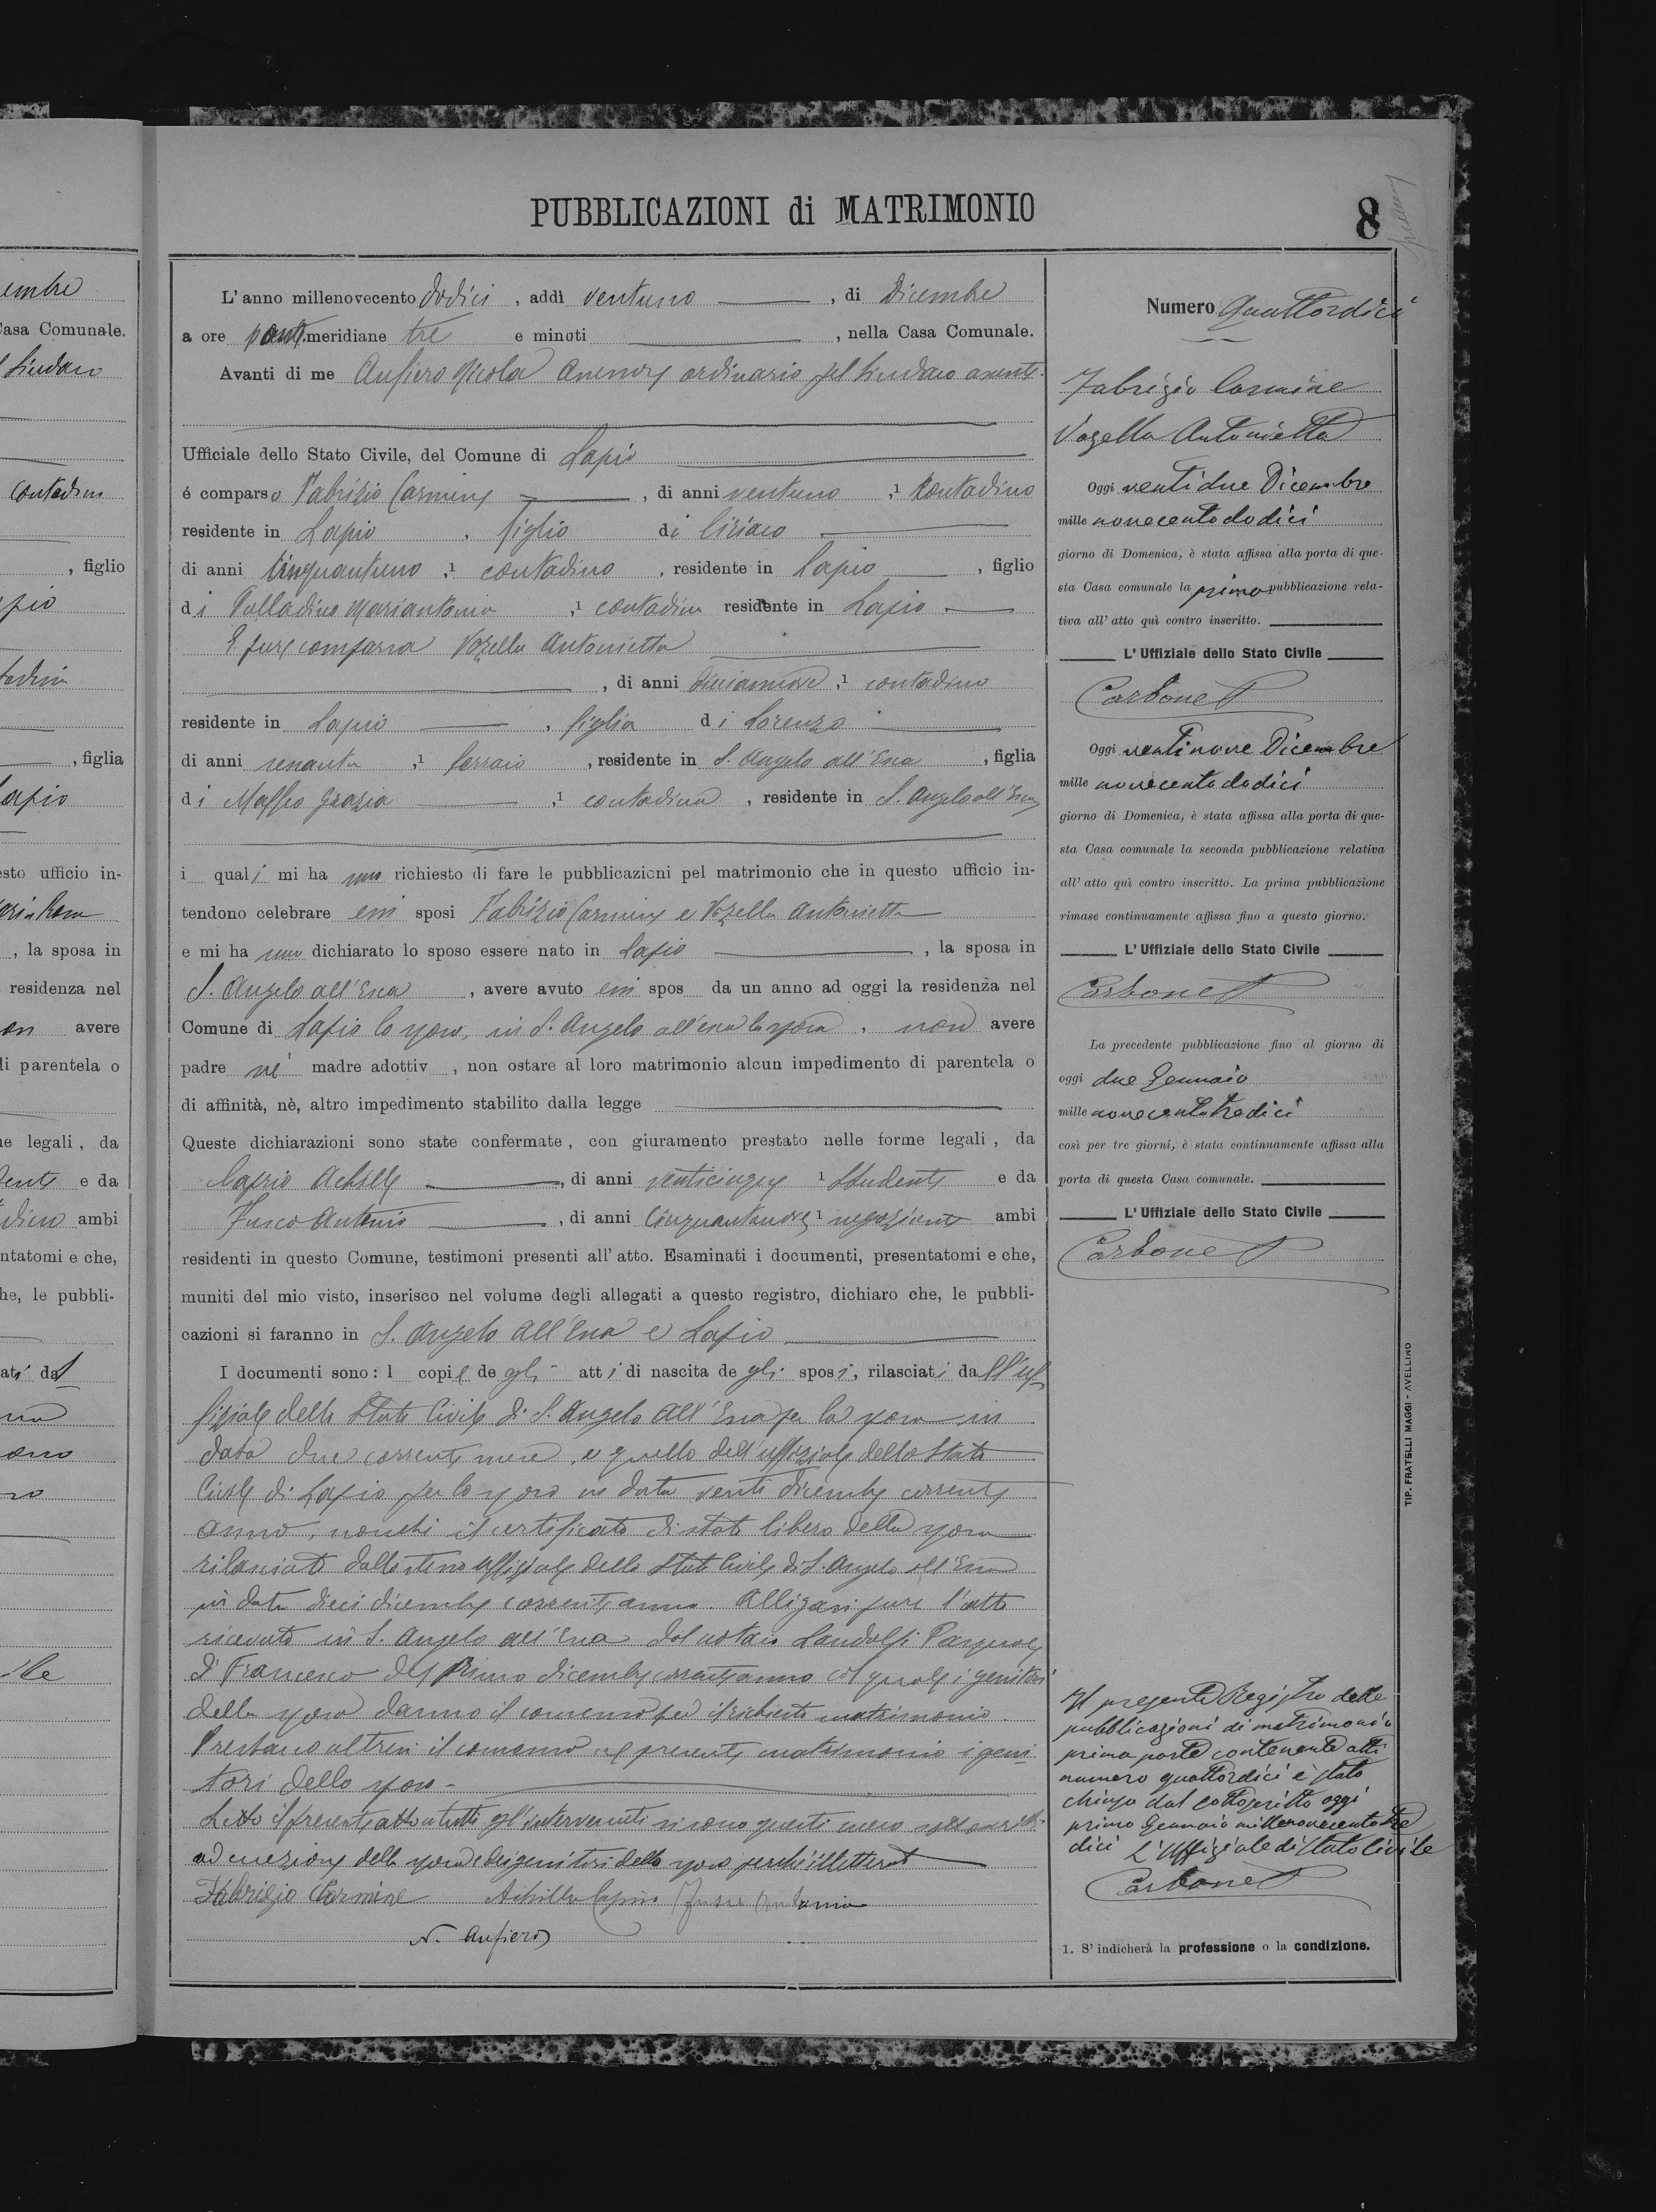 PUBBLICAZIONI di MATRIMONIO
8
L'anno millenovecento dodici, addì ventuno, di Dicembre
a ore pomemeridiane tre e minuti, nella Casa Comunale.
Avanti di me Aufiero Nicola Assessore ordinario pel Sindaco assente.
Ufficiale dello Stato Civile, del Comune di Lapio
é comparso Fabrizio Carmine, di anni ventuno, 1 contadino
residente in Lapio, figlio di Ciriaco
di anni cinquantuno, 1 contadino, residente in Lapio, figlio
di Palladino Mariantonia, 1 contadina residente in Lapio
E pure comparsa Vozella Antonietta
, di anni diciannove, 1 contadina
residente in Lapio, figlia di Lorenzo
di anni sessanta, 1 ferraio, residente in S. Angelo all'Esca, figlia
di Maffeo Grazia, 1 contadina, residente in S. Angelo all'Esca
i quali mi hanno richiesto di fare le pubblicazioni pel matrimonio che in questo ufficio in-
tendono celebrare essi sposi Fabrizio Carmine e Vozella Antonietta
e mi hanno dichiarato lo sposo essere nato in Lapio, la sposa in
S. Angelo all'Esca, avere avuto essi spos da un anno ad oggi la residenza nel
Comune di Lapio lo sposo, in S. Angelo all'Esca la sposa, non avere
padre nè madre adottiv, non ostare al loro matrimonio alcun impedimento di parentela o
di affinità, nè, altro impedimento stabilito dalla legge
Queste dichiarazioni sono state confermate, con giuramento prestato nelle forme legali, da
Caprio Achille, di anni venticinque 1 Studente e da
Fusco Antonio, di anni cinquantanove, 1 negoziante ambi
residenti in questo Comune, testimoni presenti all'atto. Esaminati i documenti, presentatomi e che,
muniti del mio visto, inserisco nel volume degli allegati a questo registro, dichiaro che, le pubbli-
cazioni si faranno in S. Angelo all'Esca e Lapio
I documenti sono: 1 copie degli atti di nascita degli sposi, rilasciati dall'uf
fiziale dello Stato Civile di S. Angelo All'Esca per la sposa in
data due corrente mese, e quello dell'uffiziale dello Stato
Civile di Lapio per lo sposo in data venti dicembre corrente
anno, nonchè il certificato di stato libero della sposa
rilasciato dallo stesso uffiziale dello Stato Civile di S. Angelo all'Esca
in data dieci dicembre corrente anno. Alligasi pure l'atto
ricevuto in S. Angelo all'Esca dal notaio Landolfi Pasquale
di Francesco del Primo dicembre corrente anno col quale i genitori
della sposa danno il consenso pel richiesto matrimonio.
Prestano altresì il consenso al presente matrimonio i geni
tori dello sposo.
Letto il presente atto a tutti gl'intervenuti si sono questi meco sottoscritti
ad eccezione della sposa e dei genitori dello sposo perchè illetterati
Fabrizio Carmine Achille Caprio Fusco Antonio
N. Aufiero
Numero Quattordici
Fabrizio Carmine
Vozella Antonietta
Oggi ventidue Dicembre
mille novecentododici
giorno di Domenica, è stata affissa alla porta di que-
sta Casa comunale la prima pubblicazione rela-
tiva all'atto quì contro inscritto.
L'Uffiziale dello Stato Civile
Carbone
Oggi ventinove Dicembre
mille novecentododici
giorno di Domenica, è stata affissa alla porta di que-
sta Casa comunale la seconda pubblicazione relativa
all'atto quì contro inscritto. La prima pubblicazione
rimase continuamente affissa fino a questo giorno.
L'Uffiziale dello Stato Civile
Carbone
La precedente pubblicazione fino al giorno di
oggi due Gennaio
mille novecentotredici
così per tre giorni, è stata continuamente affissa alla
porta di questa Casa comunale.
L'Uffiziale dello Stato Civile
Carbone
Il presente Registro delle
pubblicazioni di matrimonio
prima parte contenente atti
numero quattordici è stato
chiuso dal sottoscritto oggi
primo Gennaio millenovecentotre
dici L'Uffiziale di Stato Civile
Carbone
1. S'indicherà la professione o la condizione.
TIP. FRATELLI MAGGI - AVELLINO